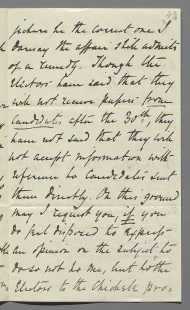 picture be the correct one I
daresay the affair still admits
of a remedy. Though the
Electors have said that they
will not receive papers from
candidates after the 30th, they
have not said that they will
not accept information with
reference to Candidates sent
them directly. On this ground
may I request you, if you
do feel disposed to express
an opinion on the subject to
do so not to me, but to the
Electors to the Chichele pro-